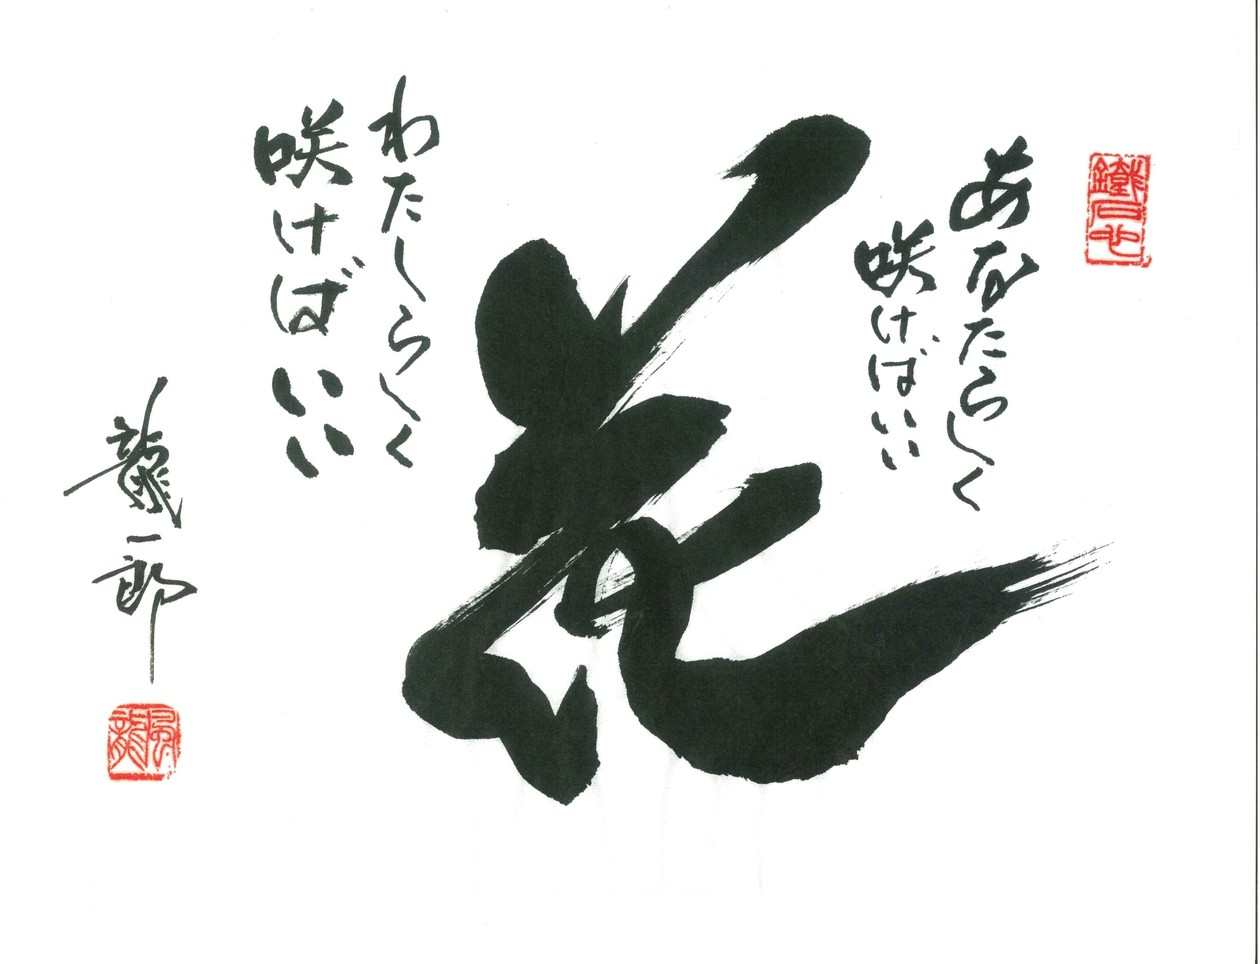 あなたらしく
咲けばいい
花
わたしらしく
咲けばいい
龍一郎